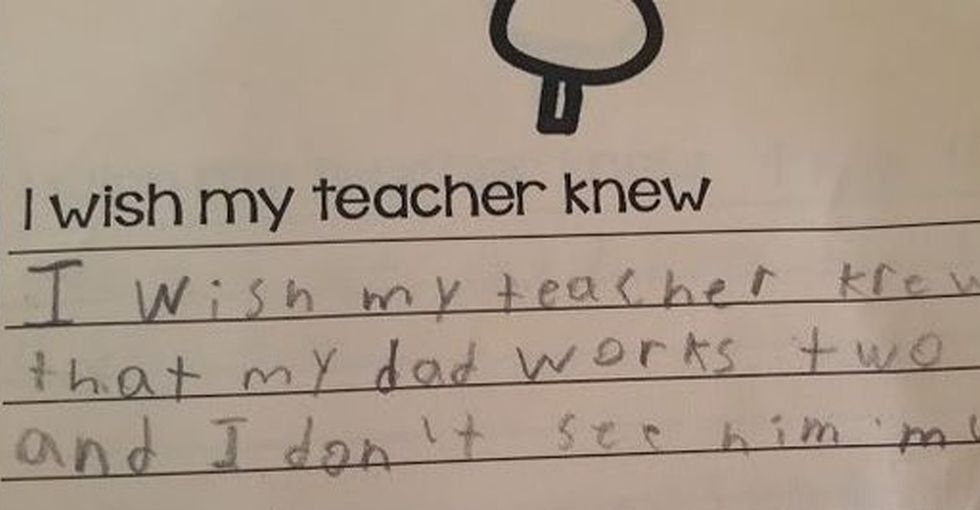 I wish my teacher knew
I wish my teacher krew
that my dad works two
and I don't see him